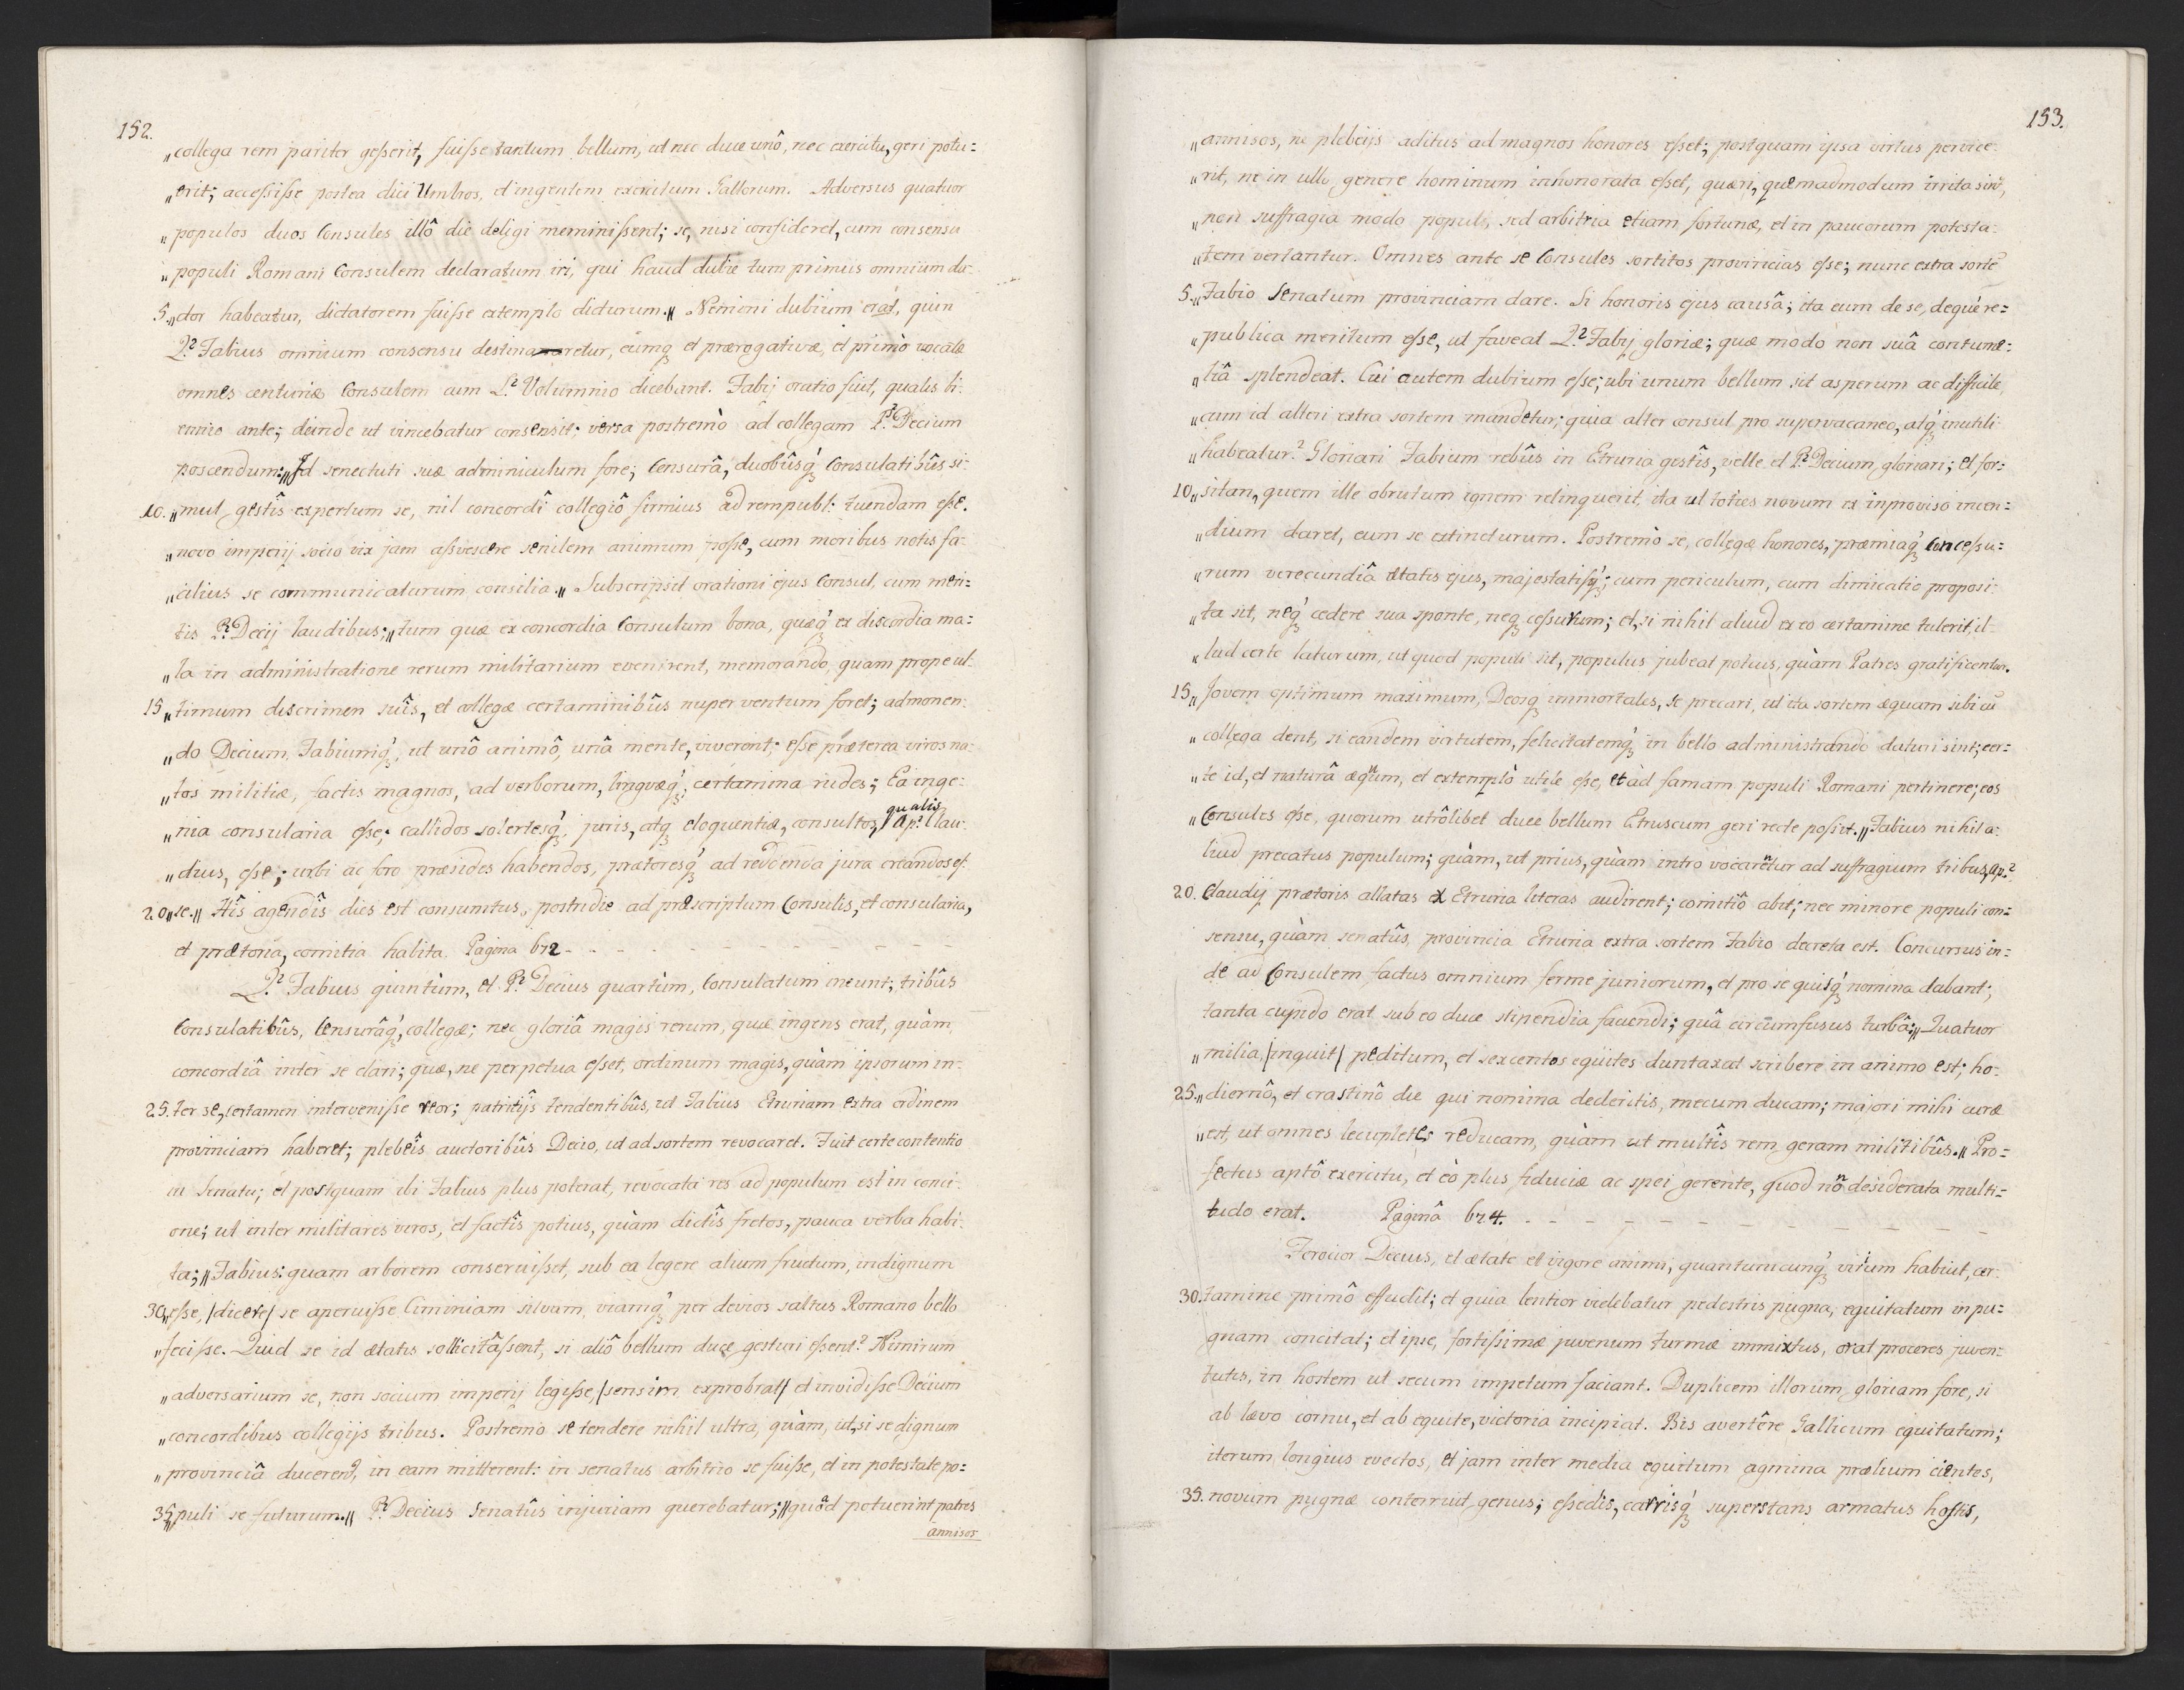 152.
„collega rem pariter gesserit, fuisse tantum bellum, ut nec duce unô, nec exercitu, geri potu=
„erit; accessisse postea dici Umbros, et ingentem exercitum Gallorum. Adversus quatuor
„populos duos Consules illô die deligi meminissent; se, nisi confideret, eum consensu
„populi Romani Consulem declaratum iri, qui haud dubie tum primus omnium du-
5. „ctor habeatur, dictatorem fuisse extemplo dicturum.„ Nemini dubium erat, quin
Q.² Fabius omnium consensu destinaretur, eumq₃ et prærogativæ, et primò vocatæ
omnes centuriæ Consulem cum L.² Volumnio dicebant. Fabij oratio fuit, qualis bi-
ennio ante; deinde ut vincebatur consensit; versa postremò ad collegam P.² Decium
poscendum:„Id senectuti suæ adminiculum fore; Censurâ, duobûsq́₃ Consulatibûs si-
10. „mul gestîs expertum se, nil concordî collegiô firmius ad rempubl: tuendam esse.
„novo imperij socio vix jam assvescere senilem animum posse, cum moribus notis fa-
„cilius se communicaturum consilia.„ Subscripsit orationi ejus Consul, cum meri=
tis P.² Decij laudibus;„tum quæ ex concordia Consulum bona, quæq́₃ ex discordia ma=
„la in administratione rerum militarium evenirent, memorando, quam prope ul-
15 „timum discrimen suîs, et collegæ certaminibûs nuper ventum foret; admonen-
„do Decium, Fabiumq́₃, ut unô animô, unâ mente, viverent; esse præterea viros na-
„tos militiæ, factis magnos, ad verborum, linguæq́₃, certamina rudes; Ea inge-
„nia consularia esse; callidos solertesq́₃ juris, atq₃ eloquentiæ, consultos, qualis Ap.² Clau-
„dius, esse; urbi ac foro præsides habendos, prætoresq́₃ ad reddenda jura creandos es-
20 „se.„ Hîs agendîs dies est consumtus, postridie ad præscriptum Consulis, et consularia,
et prætoria, comitia habita. Pagina 612 - - - - - - - - - - -
Q.² Fabius quintùm, et P.² Decius quartùm, Consulatum ineunt; tribûs
Consulatibûs, Censurâq́₃, collegæ; nec gloriâ magis rerum, quæ ingens erat, quàm
concordiâ inter se clari; quæ, ne perpetua esset, ordinum magis, quàm ipsorum in-
25. ter se, certamen intervenisse reor; patritijs tendentibûs, ut Fabius Etruriam extra ordinem
provinciam haberet; plebeîs auctoribûs Decio, ut ad sortem revocaret. Fuit certe contentio
in Senatu; et postquam ibi Fabius plus poterat, revocata res ad populum est in conci-
one; ut inter militares viros, et factîs potius, quàm dictîs fretos, pauca verba habi-
ta;„Fabius: quam arborem conservisset, sub ea legere alium fructum, indignum
30 „esse, /dicere/ se aperuisse Ciminiam silvam, viamq́₃ per devios saltus Romano bello
„fecisse. Quid se id ætatis sollicitâssent, si aliô bellum duce gesturi essent? Nimirum
„adversarium se, non socium imperij legisse, /sensim exprobrat/ et invidisse Decium
„concordibus collegijs tribus. Postremo se tendere nihil ultra, quàm, ut, si se dignum
„provinciâ ducerent, in eam mitterent: in senatus arbitrio se fuisse, et in potestate po=
35 „puli se futurum.„ P.² Decius Senatûs injuriam querebatur;„quoad potuerint patres
annisos
153.
„annisos, ne plebeijs aditus ad magnos honores esset; postquam ipsa virtus pervice-
„rit, ne in ullo genere hominum inhonorata esset, quæri, quemadmodum irrita sint,
„non suffragia modo populi, sed arbitria etiam fortunæ, et in paucorum potesta-
„tem vertantur. Omnes ante se Consules sortitos provincias esse; nunc extra sortē
5. „Fabio Senatum provinciam dare. Si honoris ejus causâ; ita eum de se, dequé re=
„publica meritum esse, ut faveat Q.² Fabij gloriæ; quæ modò non suâ contume=
„liâ splendeat. Cui autem dubium esse; ubi unum bellum sit asperum ac difficile,
„cum id alteri extra sortem mandetur; quia alter consul pro supervacaneo, atq́₃ inutili
„habeatur? Gloriari Fabium rebûs in Etruria gestîs, velle et P.² Decium gloriari; et for=
10 „sitan, quem ille obrutum ignem relinquerit, ita ut toties novum ex inproviso incen=
„dium daret, eum se extincturum. Postremò se, collegæ honores, præmiaq́₃ concessu=
„rum verecundiâ ætatis ejus, majestatisq́₃; cum periculum, cum dimicatio proposi-
„ta sit, neq́₃ cedere sua sponte, neq₃ cessurum; et, si nihil aliud ex eo certamine tulerit, il-
„lud certe laturum, ut quod populi sit, populus jubeat potius, quàm Patres gratificentur.
15 „Jovem optimum maximum, Deosq₃ immortales, se precari, ut ita sortem æquam sibi cū
„collega dent, si eandem virtutem, felicitatemq́₃ in bello administrando daturi sint; cer=
„te id, et naturâ æquum, et exemplô utile esse, et ad famam populi Romani pertinere; eos
„Consules esse, quorum utrôlibet duce bellum Etruscum geri recte possit.„ Fabius nihil a-
liud precatus populum; quàm, ut prius, quàm intro vocarentur ad suffragium tribus, Ap.²
20. Claudij prætoris allatas ex Etruria literas audirent; comitiô abit; nec minore populi con=
sensu, quàm senatûs, provincia Etruria extra sortem Fabio decreta est. Concursus in=
de ad Consulem factus omnium ferme juniorum, et pro se quisq́₃ nomina dabant;
tanta cupido erat sub eo duce stipendia faciendi; quâ circumfusus turbâ;„Quatuor
„milia, /inquit/ peditum, et sexcentos equites duntaxat scribere in animo est; ho-
25. „diernô, et crastinô die qui nomina dederitis, mecum ducam; majori mihi curæ
„est, ut omnes locupletes reducam, quàm ut multîs rem geram militibûs.„ Pro=
fectus aptô exercitu, et eò plus fiduciæ ac spei gerente, quod nō desiderata multi=
tudo erat. Paginâ 624. - - - - - - - - - -
Ferocior Decius, et ætate et vigore animi, quantumcunq́₃ virium habuit, cer-
30. tamine primô effudit; et quia lentior videbatur pedestris pugna, equitatum in pu=
gnam concitat; et ipse, fortissimæ juvenum turmæ immixtus, orat proceres juven=
tutis, in hostem ut secum impetum faciant. Duplicem illorum gloriam fore, si
ab lævo cornu, et ab equite, victoria incipiat. Bis avertêre Gallicum equitatum;
iterum longius evectos, et jam inter media equitum agmina prælium cientes,
35. novum pugnæ conterruit genus; essedis, carrisq́₃ superstans armatus hostis,